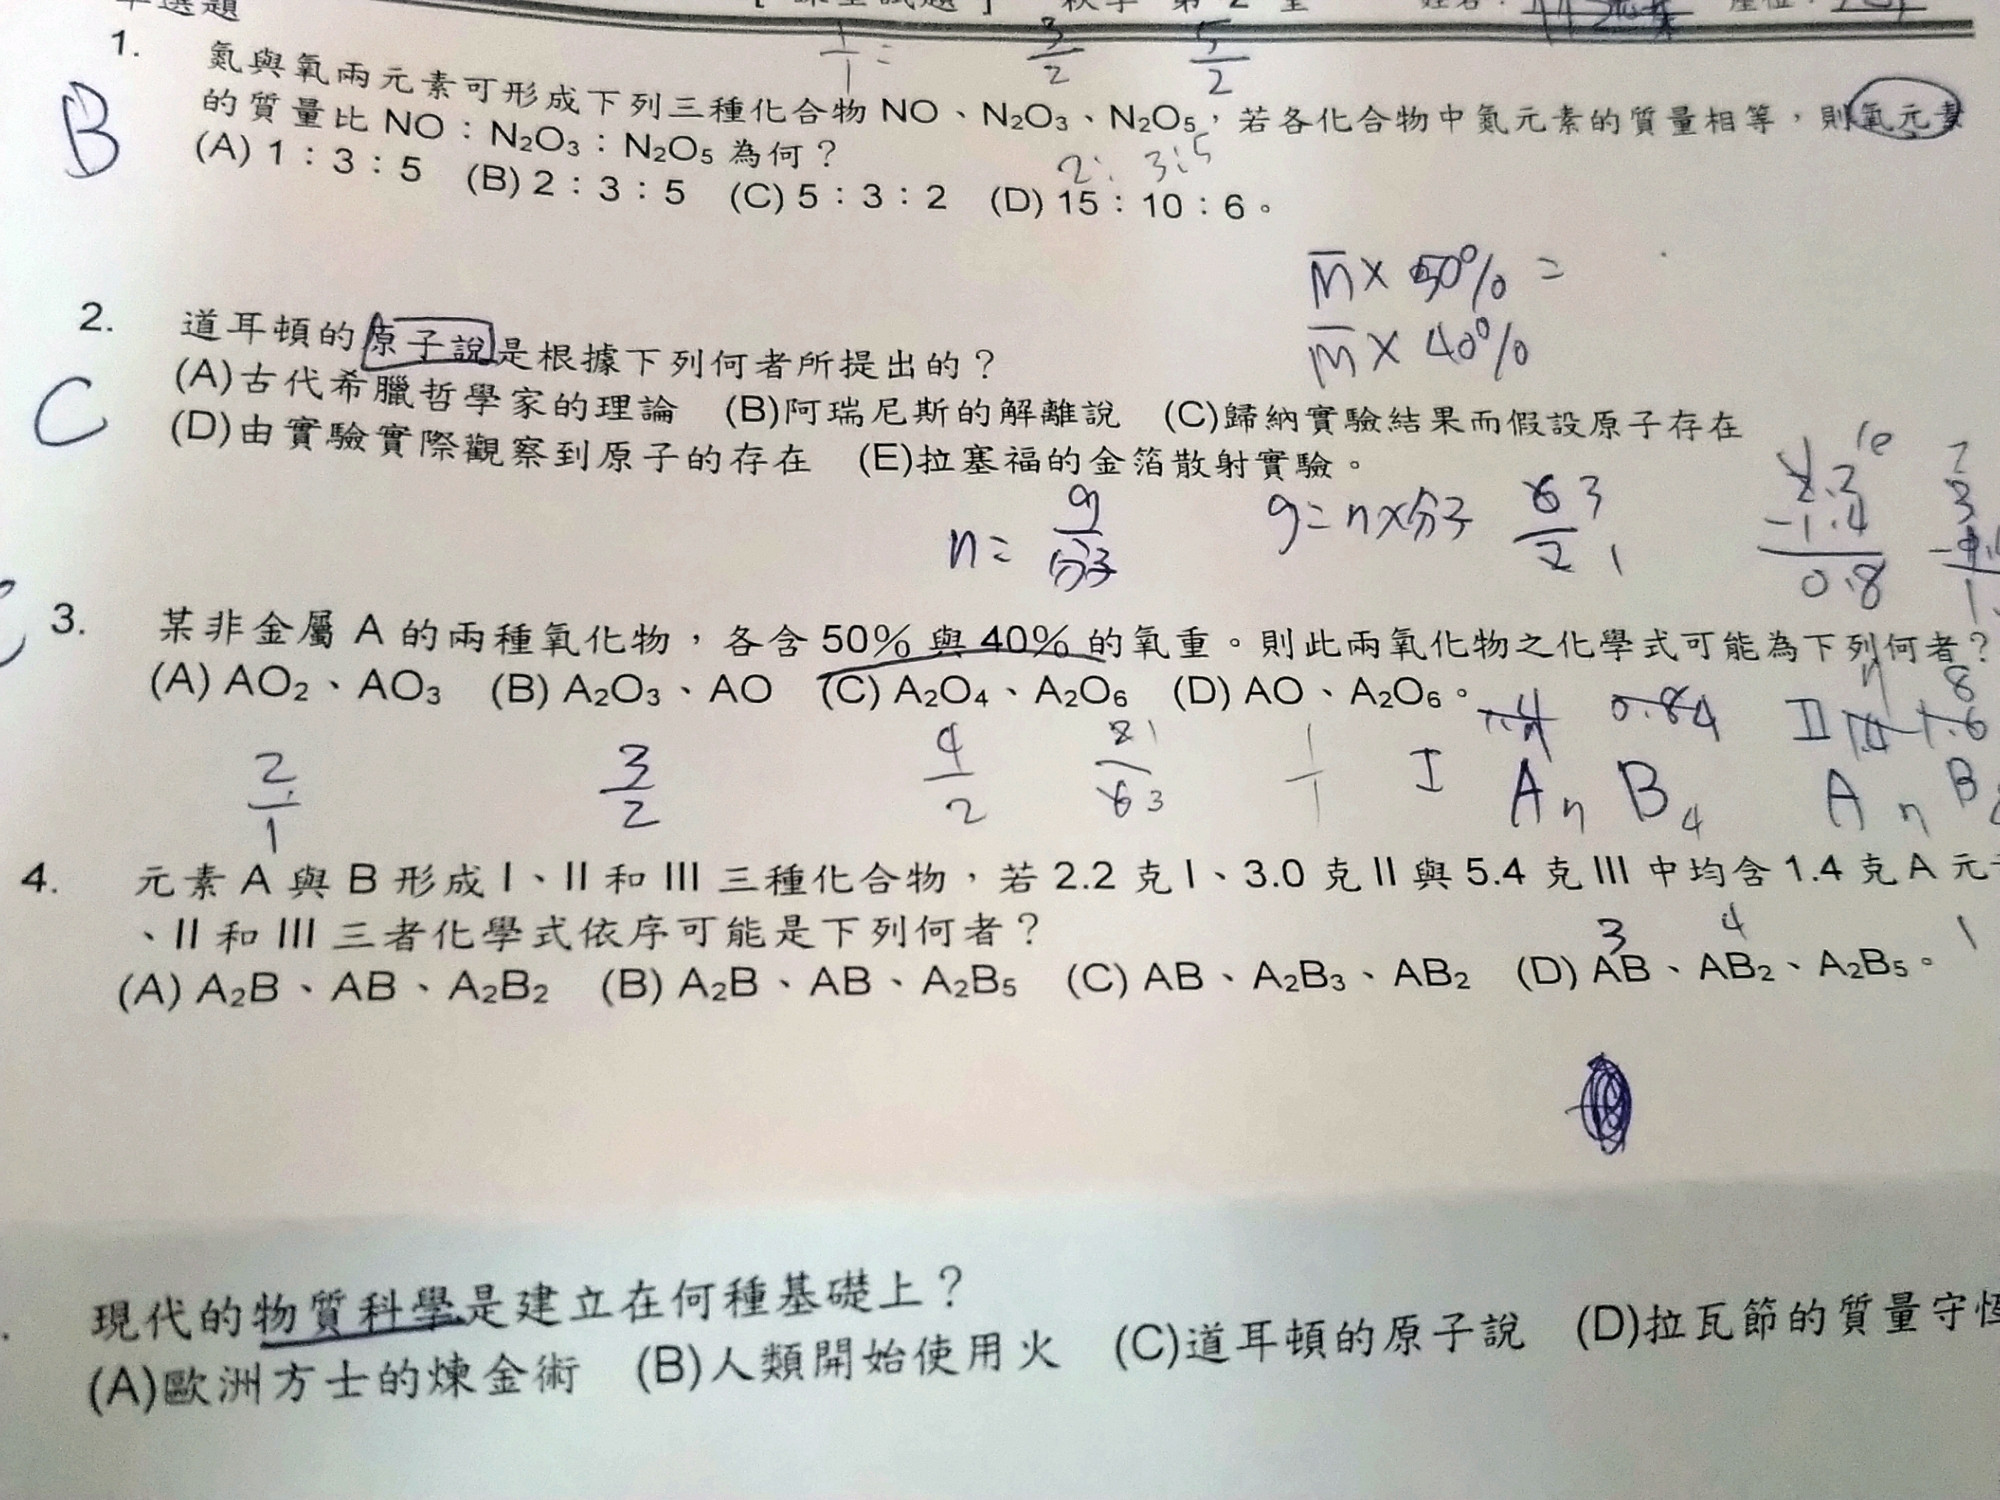 單選題
1.
氮與氧兩元素可形成下列三種化合物 NO、N2O3、N2O5,若各化合物中氮元素的質量相等,則氧元素
的質量比 NO:N2O3:N2O5 為何?
(A) 1:3:5 (B) 2:3:5 (C) 5:3:2 (D) 15:10:6。
B
1/1 =
3/2
5/2
2: 3:5
M × 50% =
M × 40%
2.
道耳頓的原子說是根據下列何者所提出的?
(A)古代希臘哲學家的理論 (B)阿瑞尼斯的解離說 (C)歸納實驗結果而假設原子存在
(D)由實驗實際觀察到原子的存在 (E)拉塞福的金箔散射實驗。
C
n = g/分子
g = n×分子
6 3
2 1
-1.4
0.8
3.
某非金屬 A 的兩種氧化物,各含 50% 與 40% 的氧重。則此兩氧化物之化學式可能為下列何者?
(A) AO2、AO3 (B) A2O3、AO (C) A2O4、A2O6 (D) AO、A2O6。
2/1
3/2
4/2
1/1
I
An B4
II
A n B
4.
元素 A 與 B 形成 I、II 和 III 三種化合物,若 2.2 克 I、3.0 克 II 與 5.4 克 III 中均含 1.4 克 A 元
、II 和 III 三者化學式依序可能是下列何者?
(A) A2B、AB、A2B2 (B) A2B、AB、A2B5 (C) AB、A2B3、AB2 (D) AB、AB2、A2B5。
3 4
現代的物質科學是建立在何種基礎上?
(A)歐洲方士的煉金術 (B)人類開始使用火 (C)道耳頓的原子說 (D)拉瓦節的質量守恆